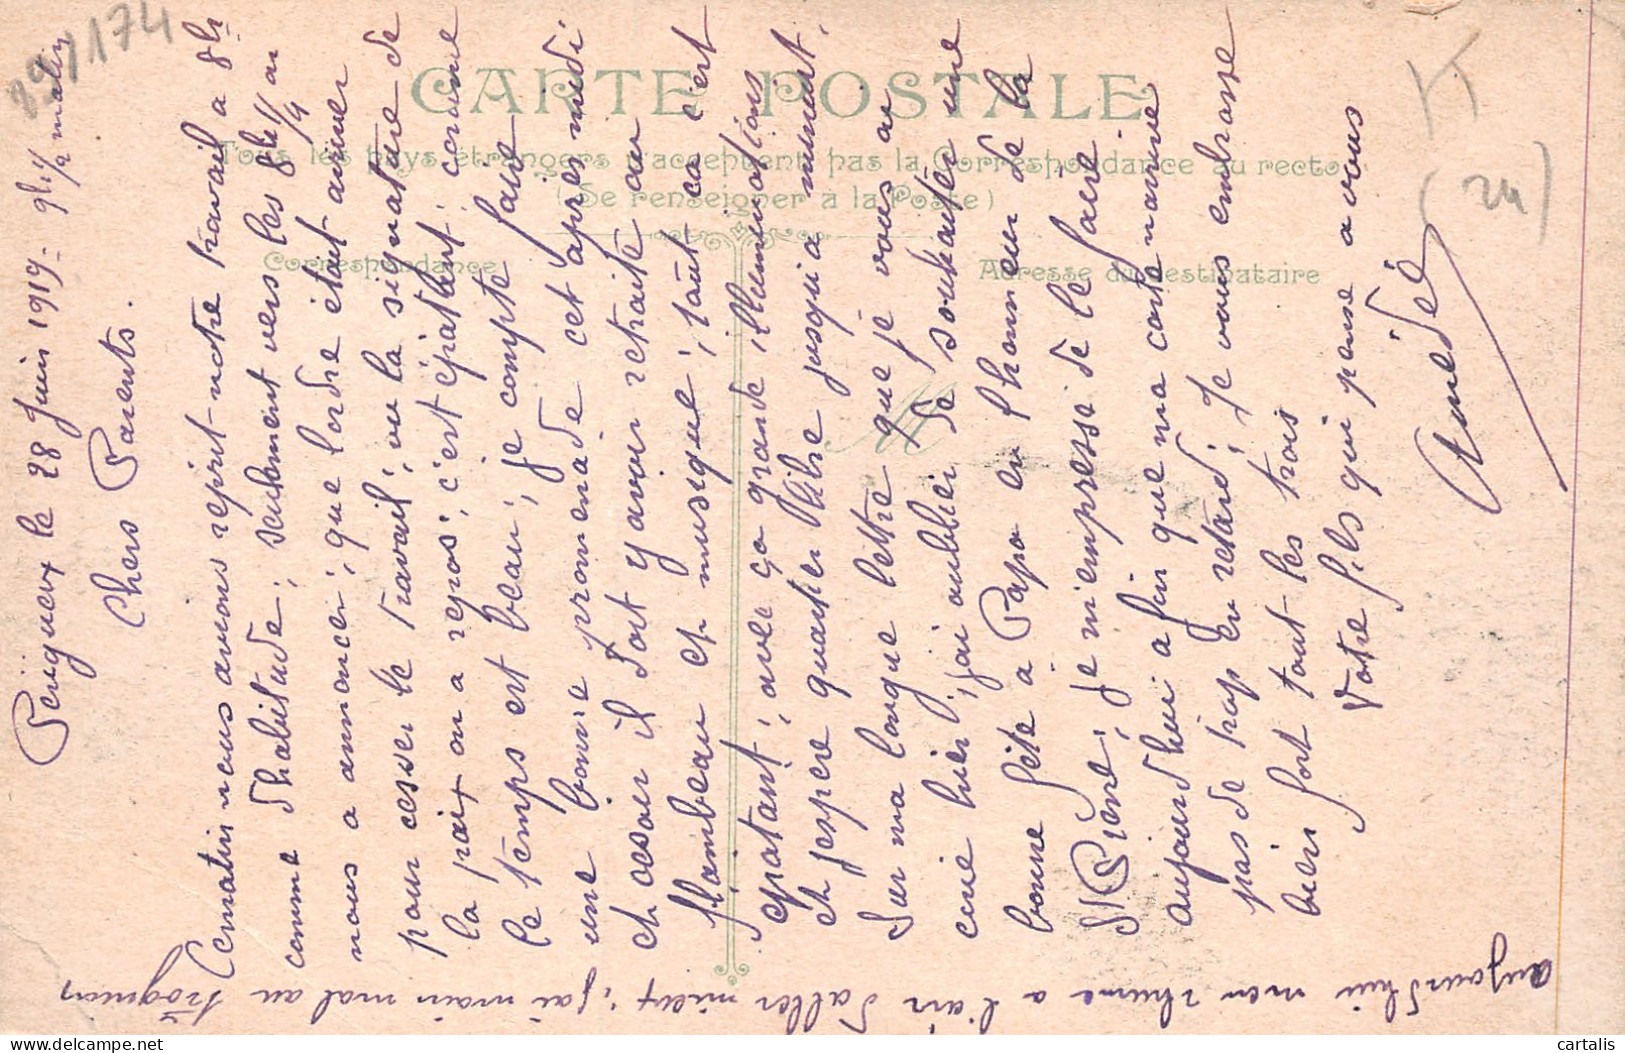 89/1174
CARTE POSTALE
Tous les pays étrangers n'acceptent pas la Correspondance au recto
(Se renseigner à la Poste)
Correspondance
Adresse du Destinataire
(24)
Périgueux le 28 Juin 1919 - 9h 1/2 matin
Chers Parents.
Cematin nous avions reprit notre travail a 8h
comme d'habitude; seulement vers les 8h 1/4 on
nous a annoncé; que lordre était arriver
pour cesser le travail; vu la signature de
la paix on a repos; c'est épattent; comme
le temps est beau; je compte faire
une bonne promenade cet apres midi
et cesoir il doit y avoir retraite au
flambeau et musique; tout ca c'est
epatant; avec ça grande illuminations
et jespere quartier libre jusqu'a minuit.
Sur ma longue lettre que je vous ai
ecrie hier j'ai oublier de souhaiter une
bonne fête à Papa en l'honneur de la
St Pierre; je m'empresse de le faire
aujourd'hui a fin que ma carte narrive
pas de trop en retard; Je vous embrasse
bien fort tout les trois
Votre fils qui pense a vous
Amédée
aujourdhui mon rhume a l'air d'aller mieux; j'ai moin mal au